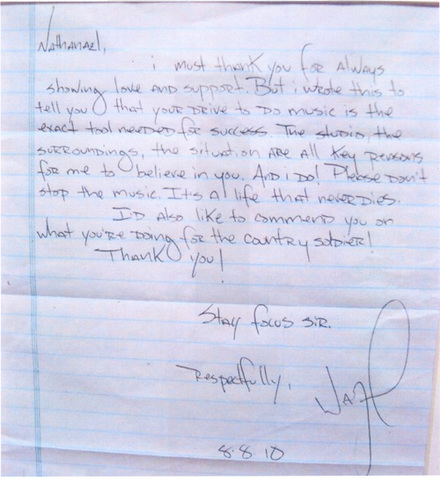 Nathanael,
i must thank you for always
showing love and support. But i wrote this to
tell you that your drive to do music is the
exact tool needed for success. The studio, the
surroundings, the situation are all key reasons
for me to believe in you. And i do! Please don't
stop the music. It's a life that never dies.
I'd also like to commend you on
what you're doing for the country soldier!
Thank you!
Stay focus sir.
Respectfully,
8.8.10